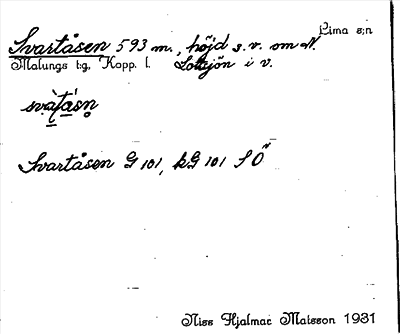 Lima s:n
Svartåsen 593 m., höjd s.v. om N.
Malungs t:g. Kopp. l. Lottsjön i v.
Svartåsen G 101, kG 101 SÖ
Nils Hjalmar Matsson 1931